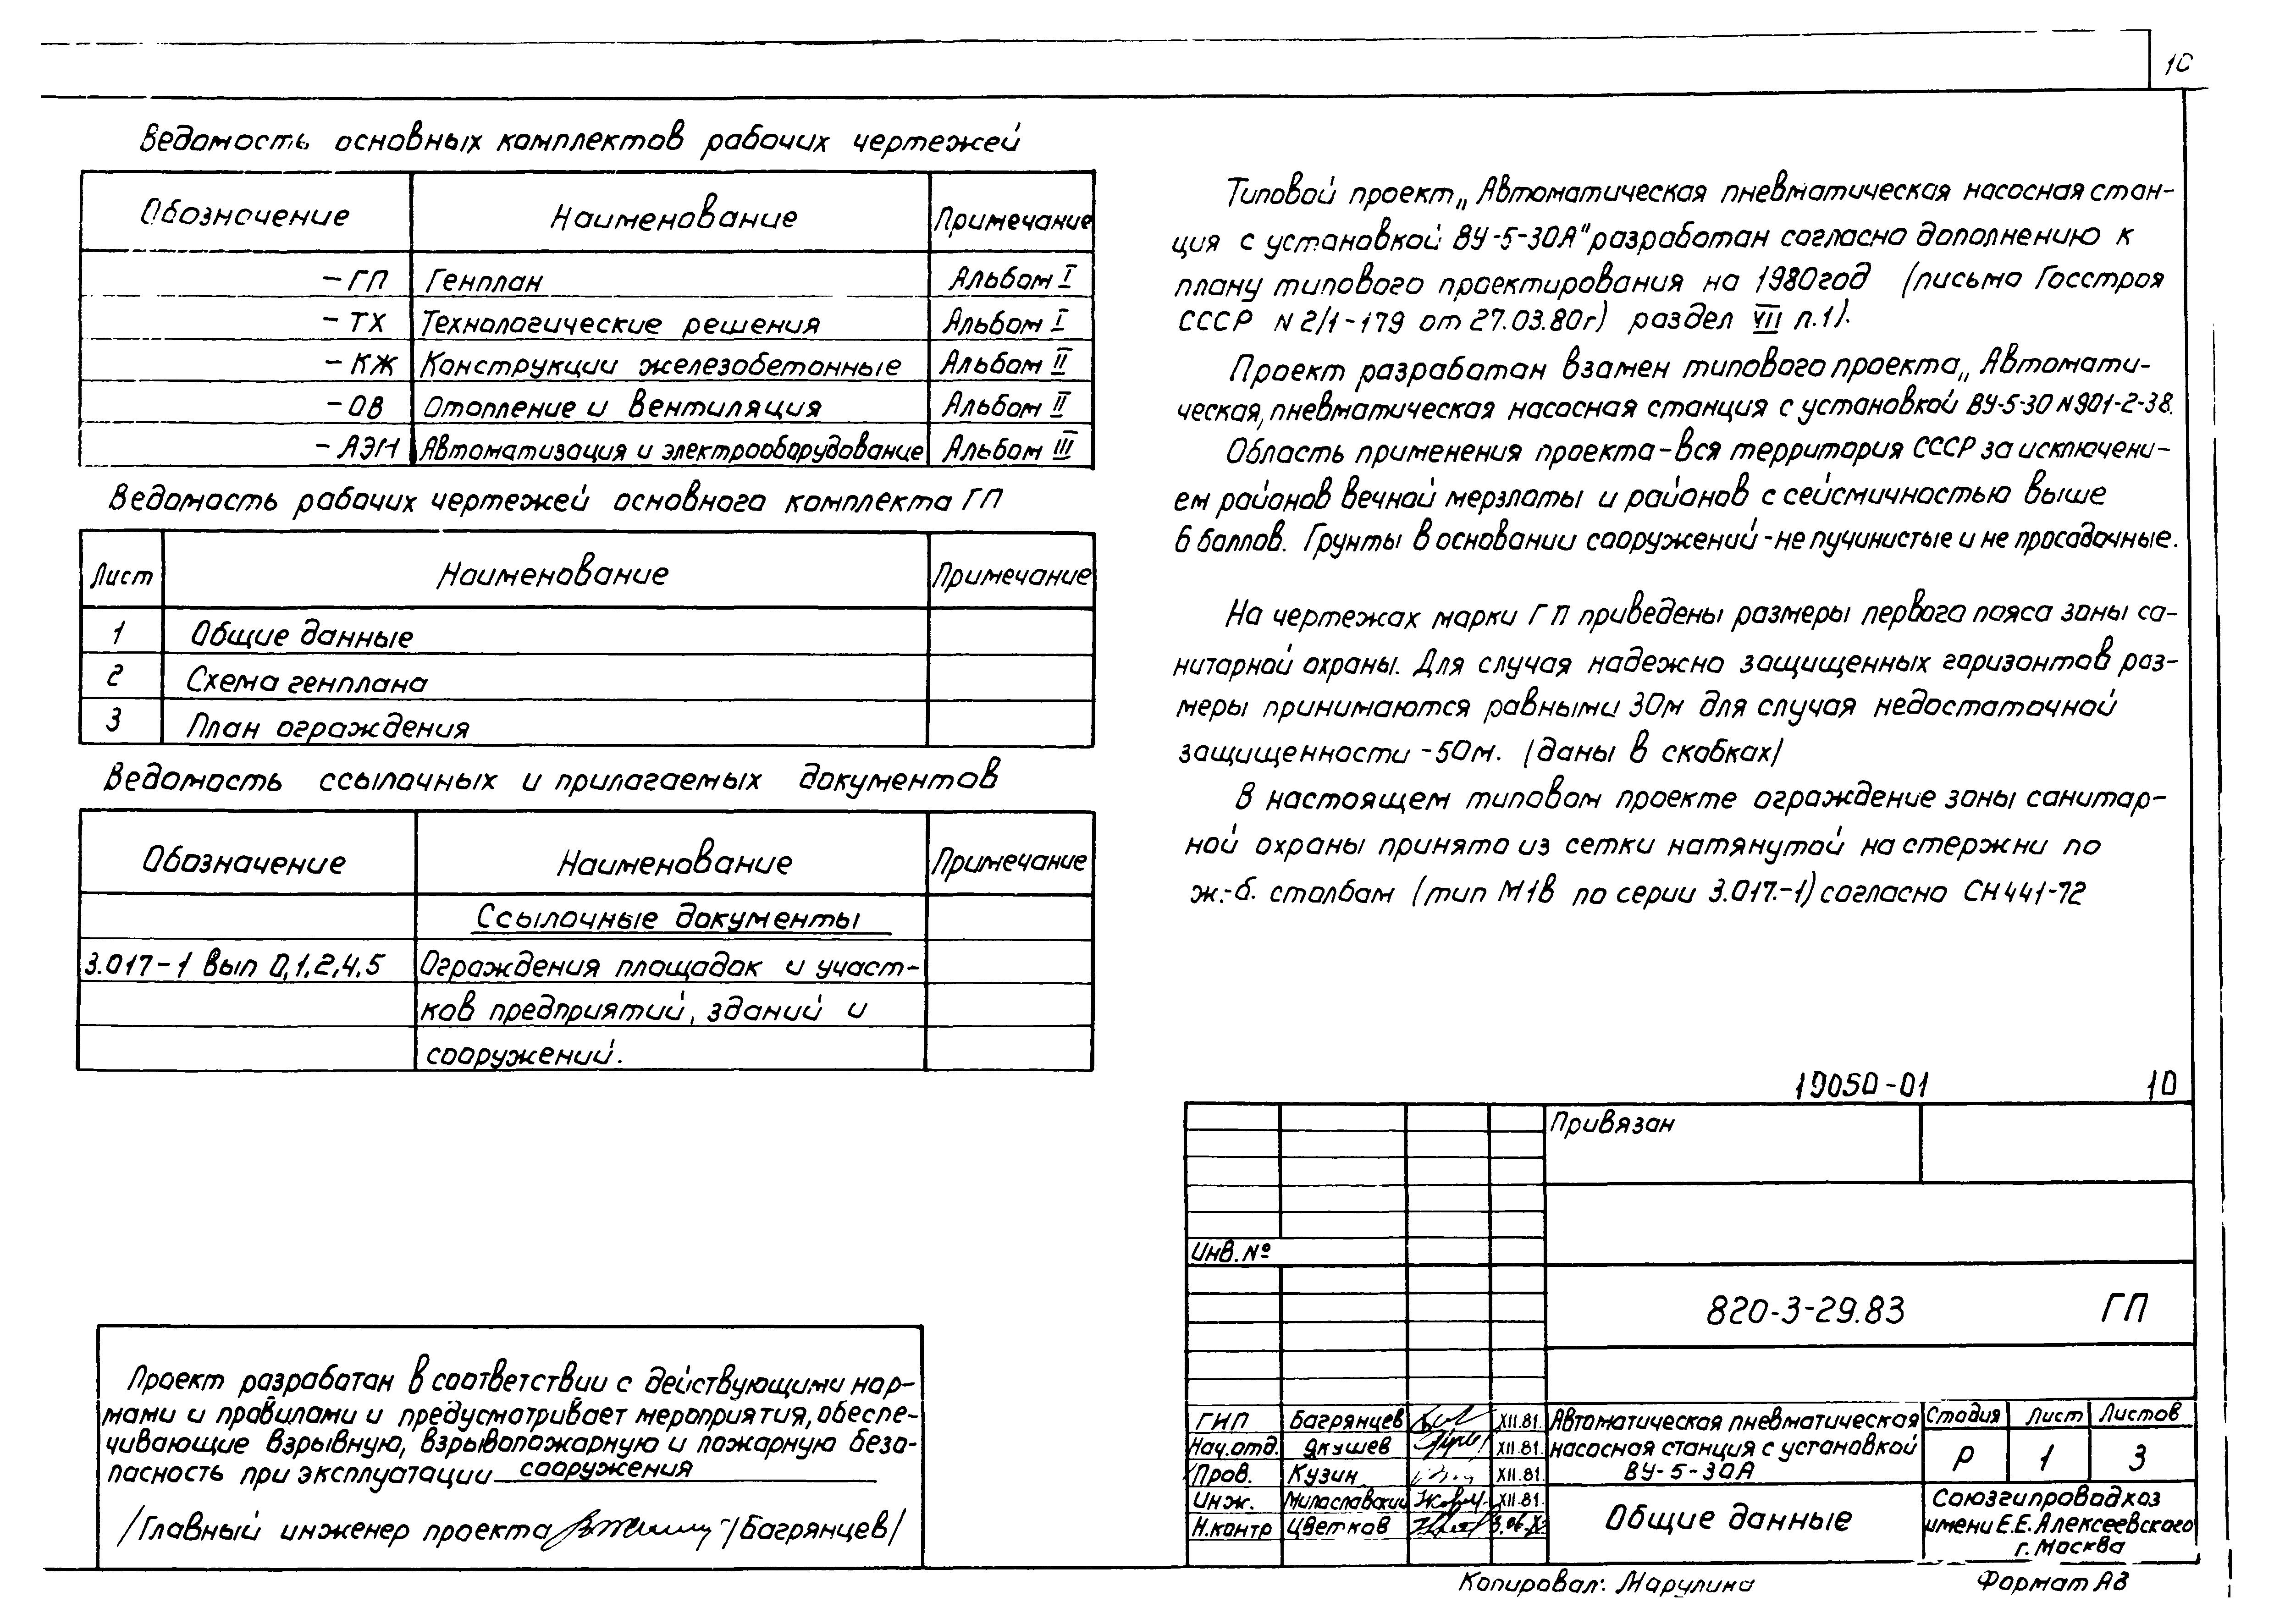 10
Ведомость основных комплектов рабочих чертежей
Обозначение Наименование Примечание
-ГП Генплан Альбом I
-ТХ Технологические решения Альбом I
-КЖ Конструкции железобетонные Альбом II
-ОВ Отопление и вентиляция Альбом II
-АЭМ Автоматизация и электрооборудование Альбом III
Ведомость рабочих чертежей основного комплекта ГП
Лист Наименование Примечание
1 Общие данные
2 Схема генплана
3 План ограждения
Ведомость ссылочных и прилагаемых документов
Обозначение Наименование Примечание
Ссылочные документы
3.017-1 вып 0,1,2,4,5 Ограждения площадок и участ-
ков предприятий, зданий и
сооружений.
Проект разработан в соответствии с действующими нор-
мами и правилами и предусматривает мероприятия, обеспе-
чивающие взрывную, взрывопожарную и пожарную безо-
пасность при эксплуатации сооружения
/Главный инженер проекта /Багрянцев/
Типовой проект „Автоматическая пневматическая насосная стан-
ция с установкой ВУ-5-30А" разработан согласно дополнению к
плану типового проектирования на 1980год (письмо Госстроя
СССР N 2/1-179 от 27.03.80г) раздел VII п.1).
Проект разработан взамен типового проекта „Автомати-
ческая, пневматическая насосная станция с установкой ВУ-5-30 N901-2-38.
Область применения проекта-вся территория СССР за исключени-
ем районов вечной мерзлоты и районов с сейсмичностью выше
6 баллов. Грунты в основании сооружений-не пучинистые и не просадочные.
На чертежах марки ГП приведены размеры первого пояса зоны са-
нитарной охраны. Для случая надежно защищенных горизонтов раз-
меры принимаются равными 30м для случая недостаточной
защищенности -50м. (даны в скобках)
В настоящем типовом проекте ограждение зоны санитар-
ной охраны принято из сетки натянутой на стержни по
ж.-б. столбам (тип М1В по серии 3.017.-1) согласно СН 441-72
19050-01 10
Привязан
Инв. №
820-3-29.83 ГП
ГИП Багрянцев XII.81.
Нач.отд. Якушев XII.81.
Пров. Кузин XII.81.
Инж. Милославский XII.81.
Н.контр Цветков
Автоматическая пневматическая
насосная станция с установкой
ВУ-5-30А
Стадия Лист Листов
Р 1 3
Общие данные
Союзгипроводхоз
имени Е.Е.Алексеевского
г. Москва
Копировал: Марулина Формат А3